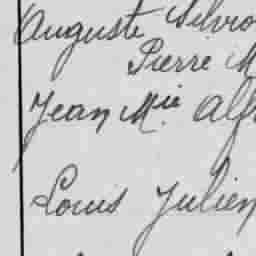 Auguste Silvio
Pierre M
Jean Mie Alf
Louis Julien